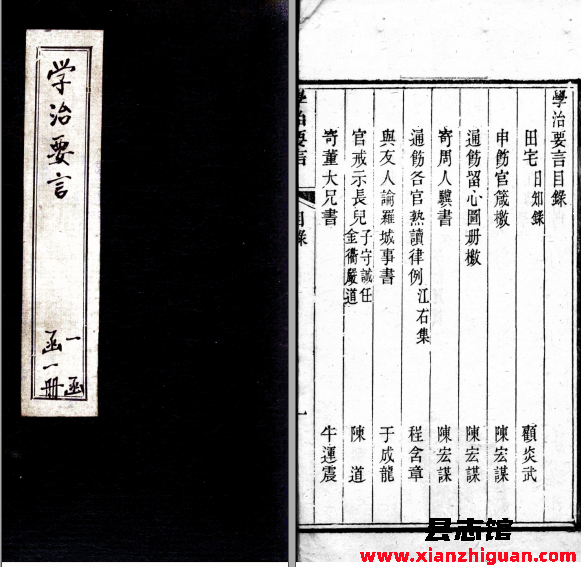 学治要言
一函
函一册
學治要言目錄
田宅 日知錄 顧炎武
申飭官箴檄 陳宏謀
通飭留心圖册檄 陳宏謀
寄周人驥書 陳宏謀
通飭各官熟讀律例 江右集 程含章
與友人論羅城事書 于成龍
官戒示長兒 子守誠任金衢嚴道 陳道
寄董大兄書 牛運震
學治要言 目錄 一
县志馆
www.xianzhiguan.com